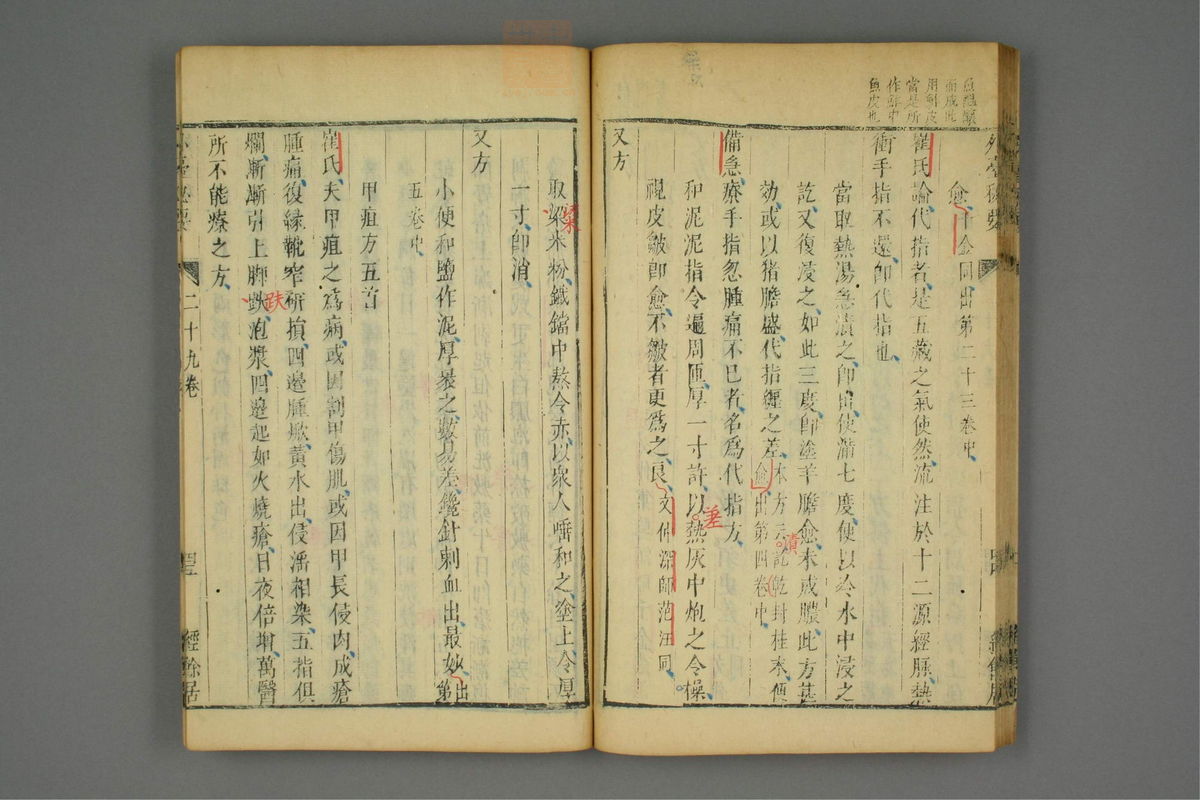 愈千金同出第二十三卷中
崔氏論代指者是五藏之氣使然流注於十二源經脈熱
衝手指不還卽代指也
當取熱湯急漬之卽出使滿七度便以冷水中浸之
訖又復浸之如此三度卽塗羊膽愈未成膿此方甚
効或以猪膽盛代指纏之差本方云訖乾封桂末便愈出第四卷中
備急療手指忽腫痛不已者名爲代指方
和泥泥指令遍周匝厚一寸許以熱灰中炮之令燥
視皮皺卽愈不皺者更爲之良文仲深師范汪同
又方
取梁米粉鐵鐺中熬令赤以衆人唾和之塗上令厚
一寸卽消
又方
小便和鹽作泥厚裹之數易差鑱針刺血出最妙出第
五卷中
甲疽方五首
崔氏夫甲疽之爲病或因割甲傷肌或因甲長侵肉成瘡
腫痛復緣靴窄研損四邊腫焮黃水出侵淫相染五指俱
爛漸漸引上脚趺泡漿四邊起如火燒瘡日夜倍增萬醫
所不能療之方
二十九卷
經餘居